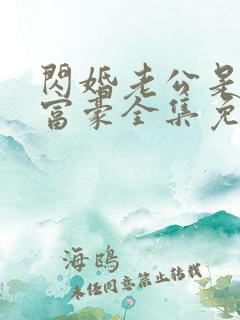 閃婚老公是
富豪全集免
海鴎
未经同意禁止转载